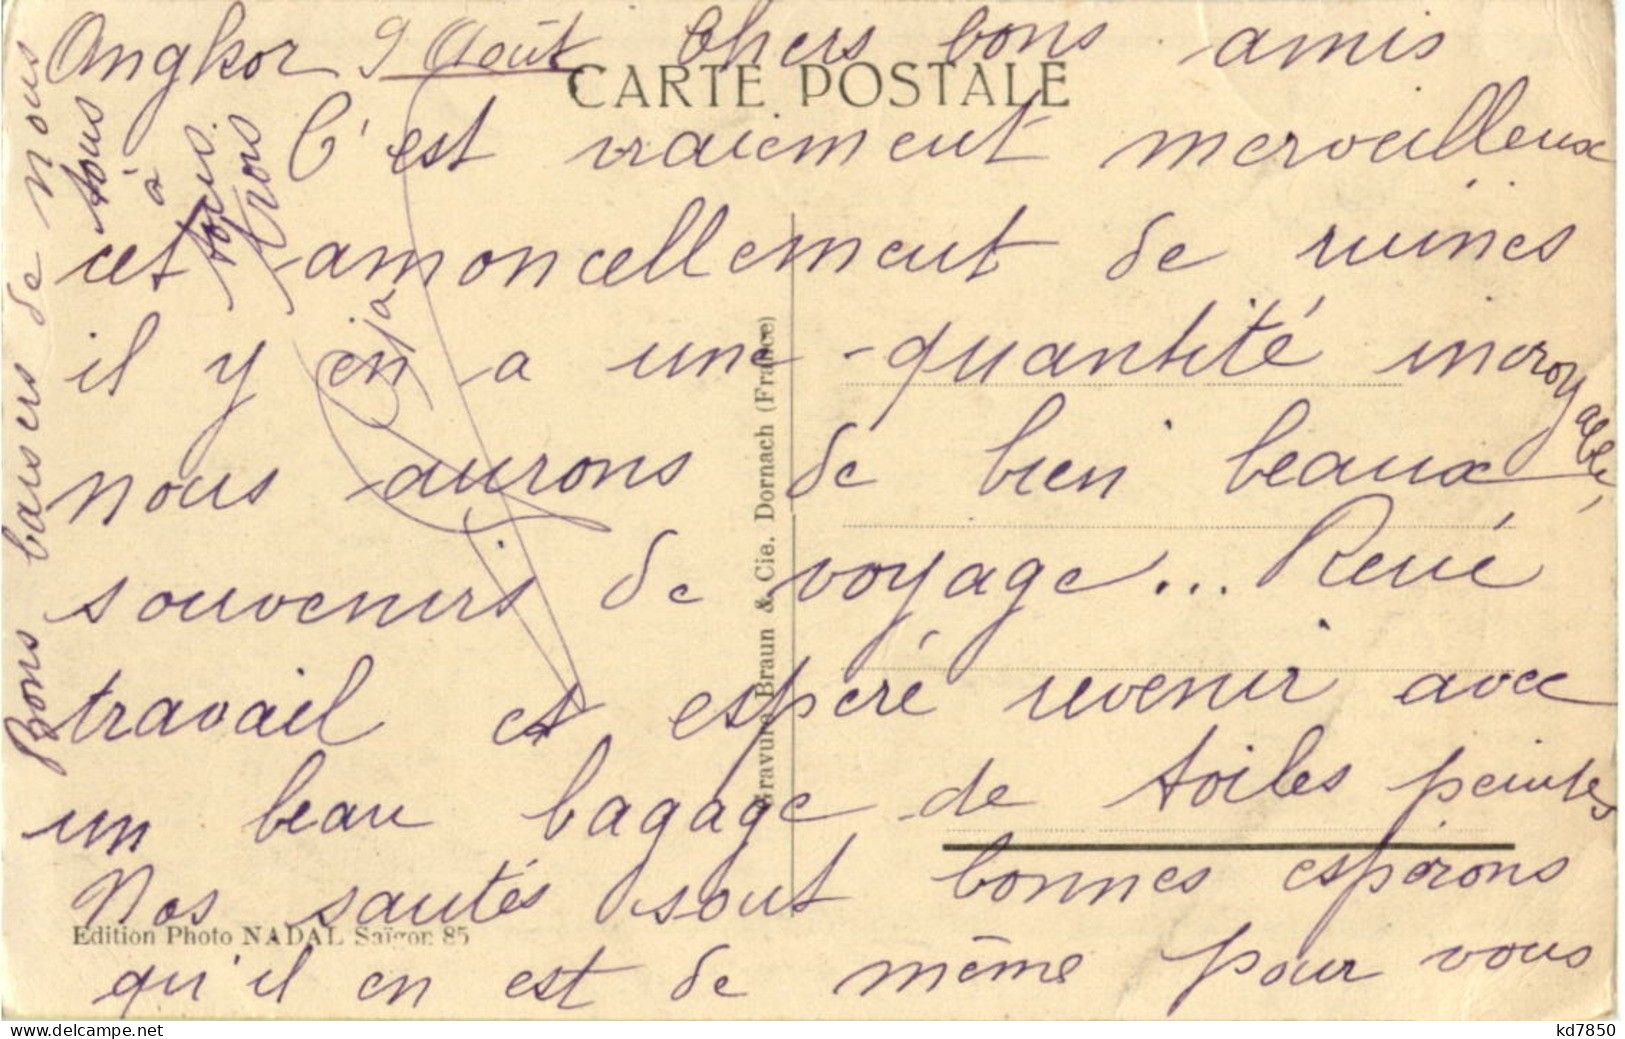 Angkor 9 Août Chers bons amis
CARTE POSTALE
C'est vraiement merveilleux
cet amoncellement de ruines
il y en a une quantité incroyable,
nous aurons de bien beaux
souvenirs de voyage... René
travail et espère revenir avec
un beau bagage de toiles peintes
Nos santés sont bonnes espérons
qu'il en est de même pour vous
Bons baisers de nous
tous
à
tous
trois
Gravure Braun & Cie. Dornach (France)
Edition Photo NADAL Saïgon 85
kd7850